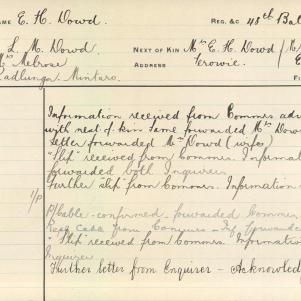 AME E. H. Dowd. REG. &C 48th Bat
L. M. Dowd NEXT OF KIN Mrs E. H. Dowd
Melrose ADDRESS Terowie.
Mintaro.
Information received from Commrs adv
with next of kin. Same forwarded Mrs Dowd
Letter forwarded Mrs Dowd (wife)
"Slip" received from Commrs. Informat
forwarded both Inquirers
Further slip from Commrs. Information
1/P P/Cable - confirmed forwarded Commrs
Cable from Enquirer forwarded
"Slip" received from Commrs. Informatio
Inquirer
Further letter from Enquirer - Acknowled